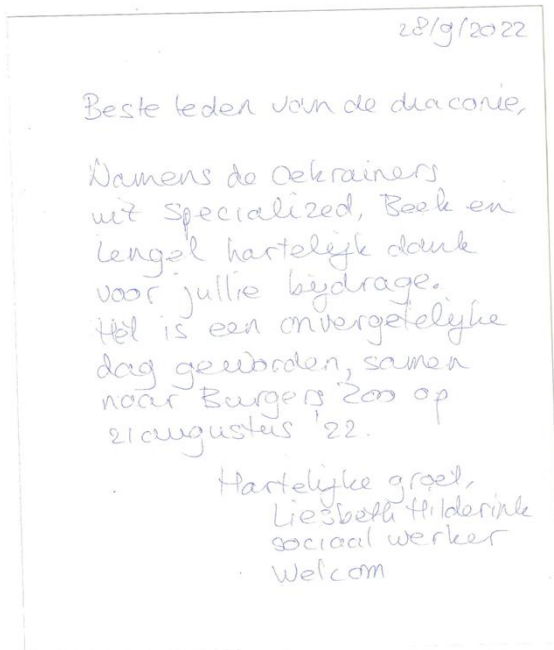 28/9/2022
Beste leden van de diaconie,
Namens de Oekrainers
uit Specialized, Beek en
Lengel hartelijk dank
voor jullie bijdrage.
Het is een onvergetelijke
dag geworden, samen
naar Burgers Zoo op
21 augustus '22.
Hartelijke groet,
Liesbeth Hilderink
sociaal werker
Welcom